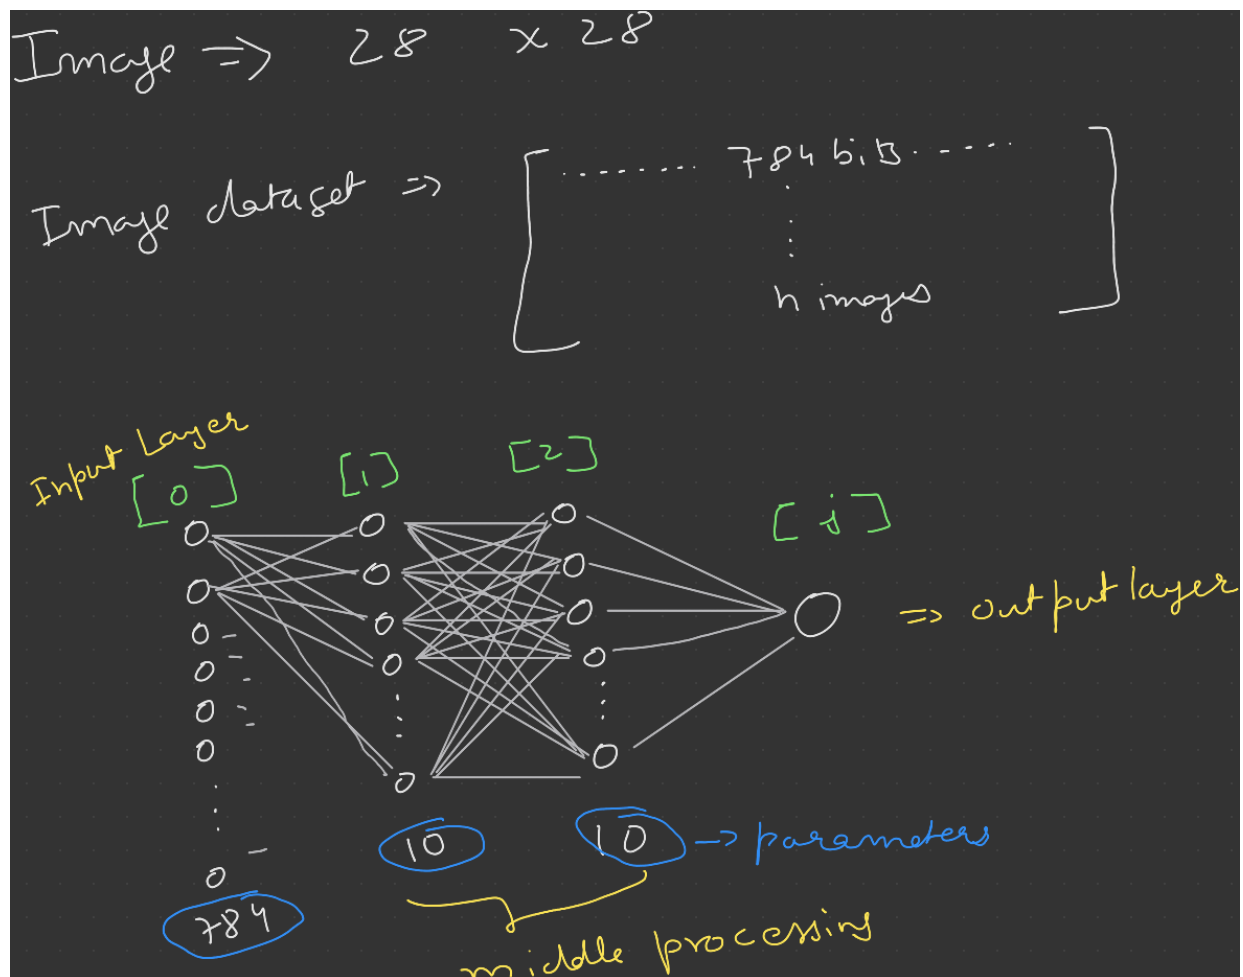 Image => 28 x 28
Image dataset =>
784 bits
n images
Input Layer
[0] [1] [2] [j]
=> output layer
10 10 -> parameters
784
middle processing